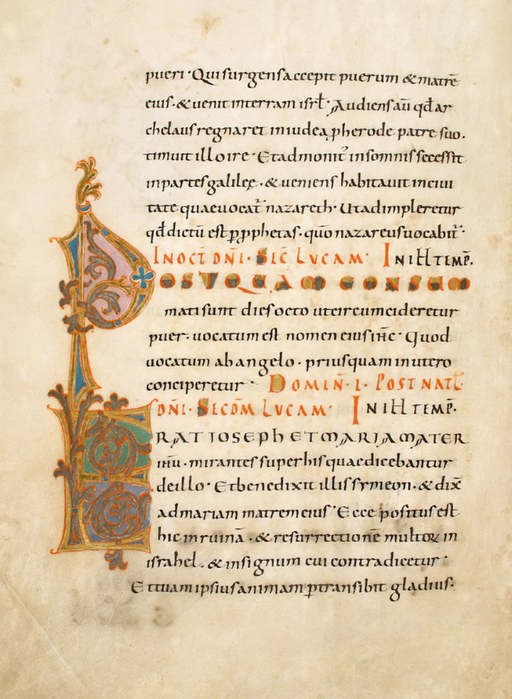 pueri · Qui surgens accepit puerum & matrē
eius · & uenit in terram isrł · Audiens aū qđ ar
chelaus regnaret in iudea p herode patre suo ·
timuit illo ire · Et admonit' in somnis secessit
in partes galileę · & ueniens habitauit in ciui
tate quae uocat' nazareth · Ut adimpleretur
qđ dictū est p pphetas · quō nazareus uocabit' ·
IN OCT DNI · SEC LVCAM · IN ILL TEMP.
POSTQUAM CONSUM
mati sunt dies octo ut circumcideretur
puer · uocatum est nomen eius ihc · Quod
uocatum ab angelo · priusquam in utero
conciperetur · DOMIN · I · POST NATL
DNI · SECDM LVCAM · IN ILL TEMP.
ERAT IOSEPH ET MARIA MATER
ihu · mirantes super his quae dicebantur
de illo · Et benedixit illis symeon · & dix
ad mariam matrem eius · Ecce positus est
hic in ruinā · & resurrectionē multor in
israhel · & in signum cui contradicetur ·
Et tuam ipsius animam ptransibit gladius ·